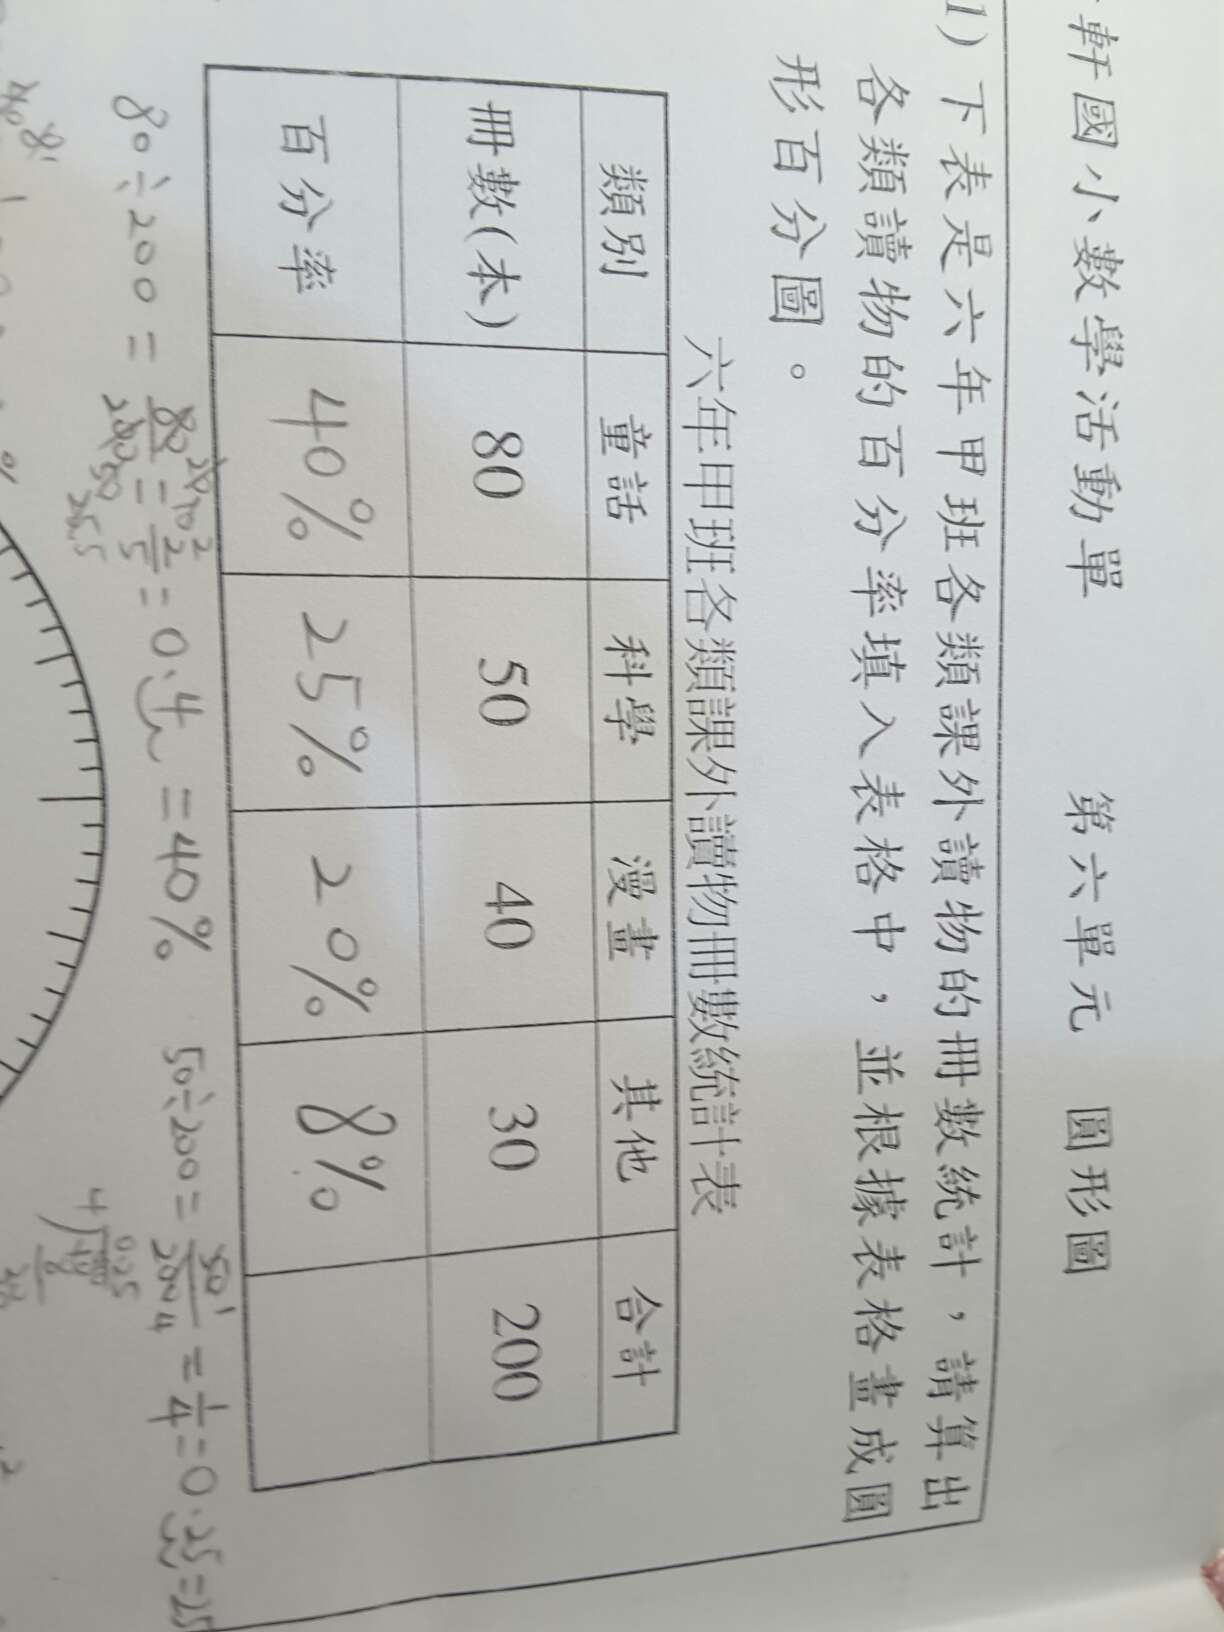 軒國小數學活動單 第六單元 圓形圖
1) 下表是六年甲班各類課外讀物的冊數統計，請算出
各類讀物的百分率填入表格中，並根據表格畫成圓
形百分圖。
六年甲班各類課外讀物冊數統計表
類別 童話 科學 漫畫 其他 合計
冊數(本) 80 50 40 30 200
百分率 40% 25% 20% 8%
80÷200=80/200=2/5=0.4=40% 50÷200=50/200=1/4=0.25=25